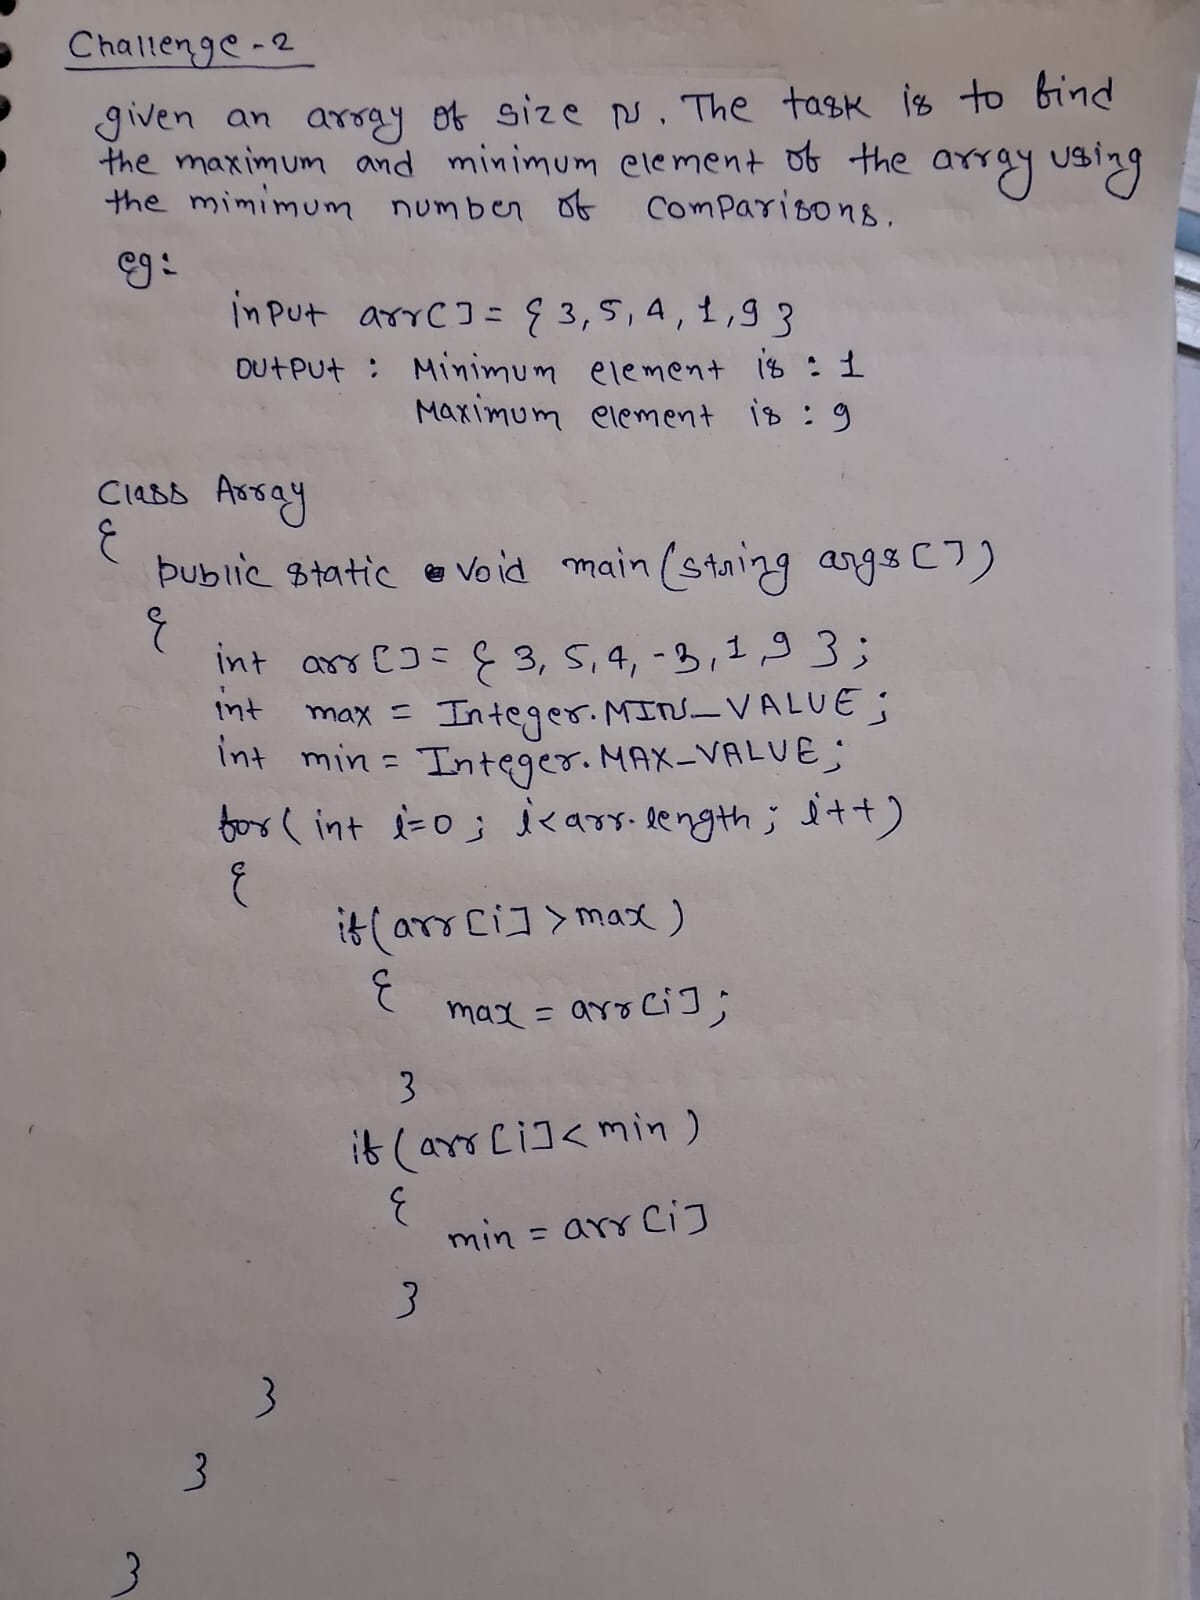 Challenge-2
given an array of size N. The task is to find
the maximum and minimum element of the array using
the mimimum number of comparisons.
eg:
input arr[] = { 3, 5, 4, 1, 9 }
output : Minimum element is : 1
Maximum element is : 9
Class Array
{
public static void main (string args [])
{
int arr [] = { 3, 5, 4, -3, 1, 9 };
int max = Integer.MIN_VALUE;
int min = Integer.MAX_VALUE;
for ( int i=0; i<arr.length; i++)
{
if (arr [i] > max )
{ max = arr [i];
}
if (arr [i] < min )
{
min = arr [i]
}
}
}
}